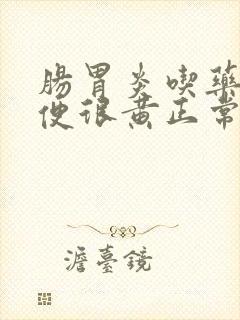 腸胃炎喫藥
便很黃正常
澹臺鏡